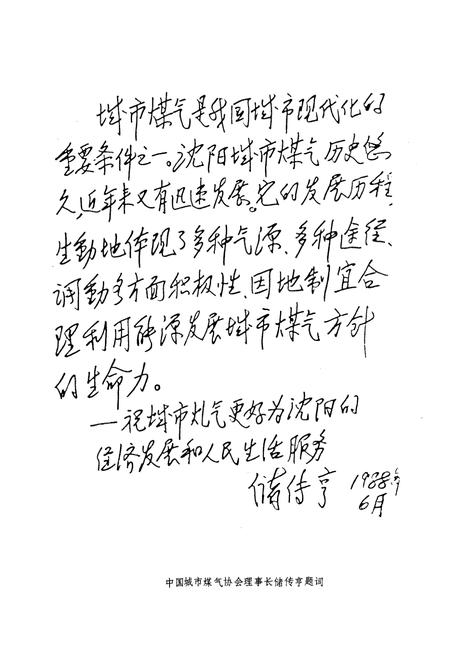 城市煤气是我国城市现代化的
重要条件之一。沈阳城市煤气历史悠
久,近年来又有迅速发展。它的发展历程,
生動地体现了多种气源、多种途径、
调動多方面积极性、因地制宜合
理利用能源发展城市煤气方针
的生命力。
—祝城市煤气更好为沈阳的
经济发展和人民生活服务
储传亨 1988年
6月
中国城市煤气协会理事长储传亨题词